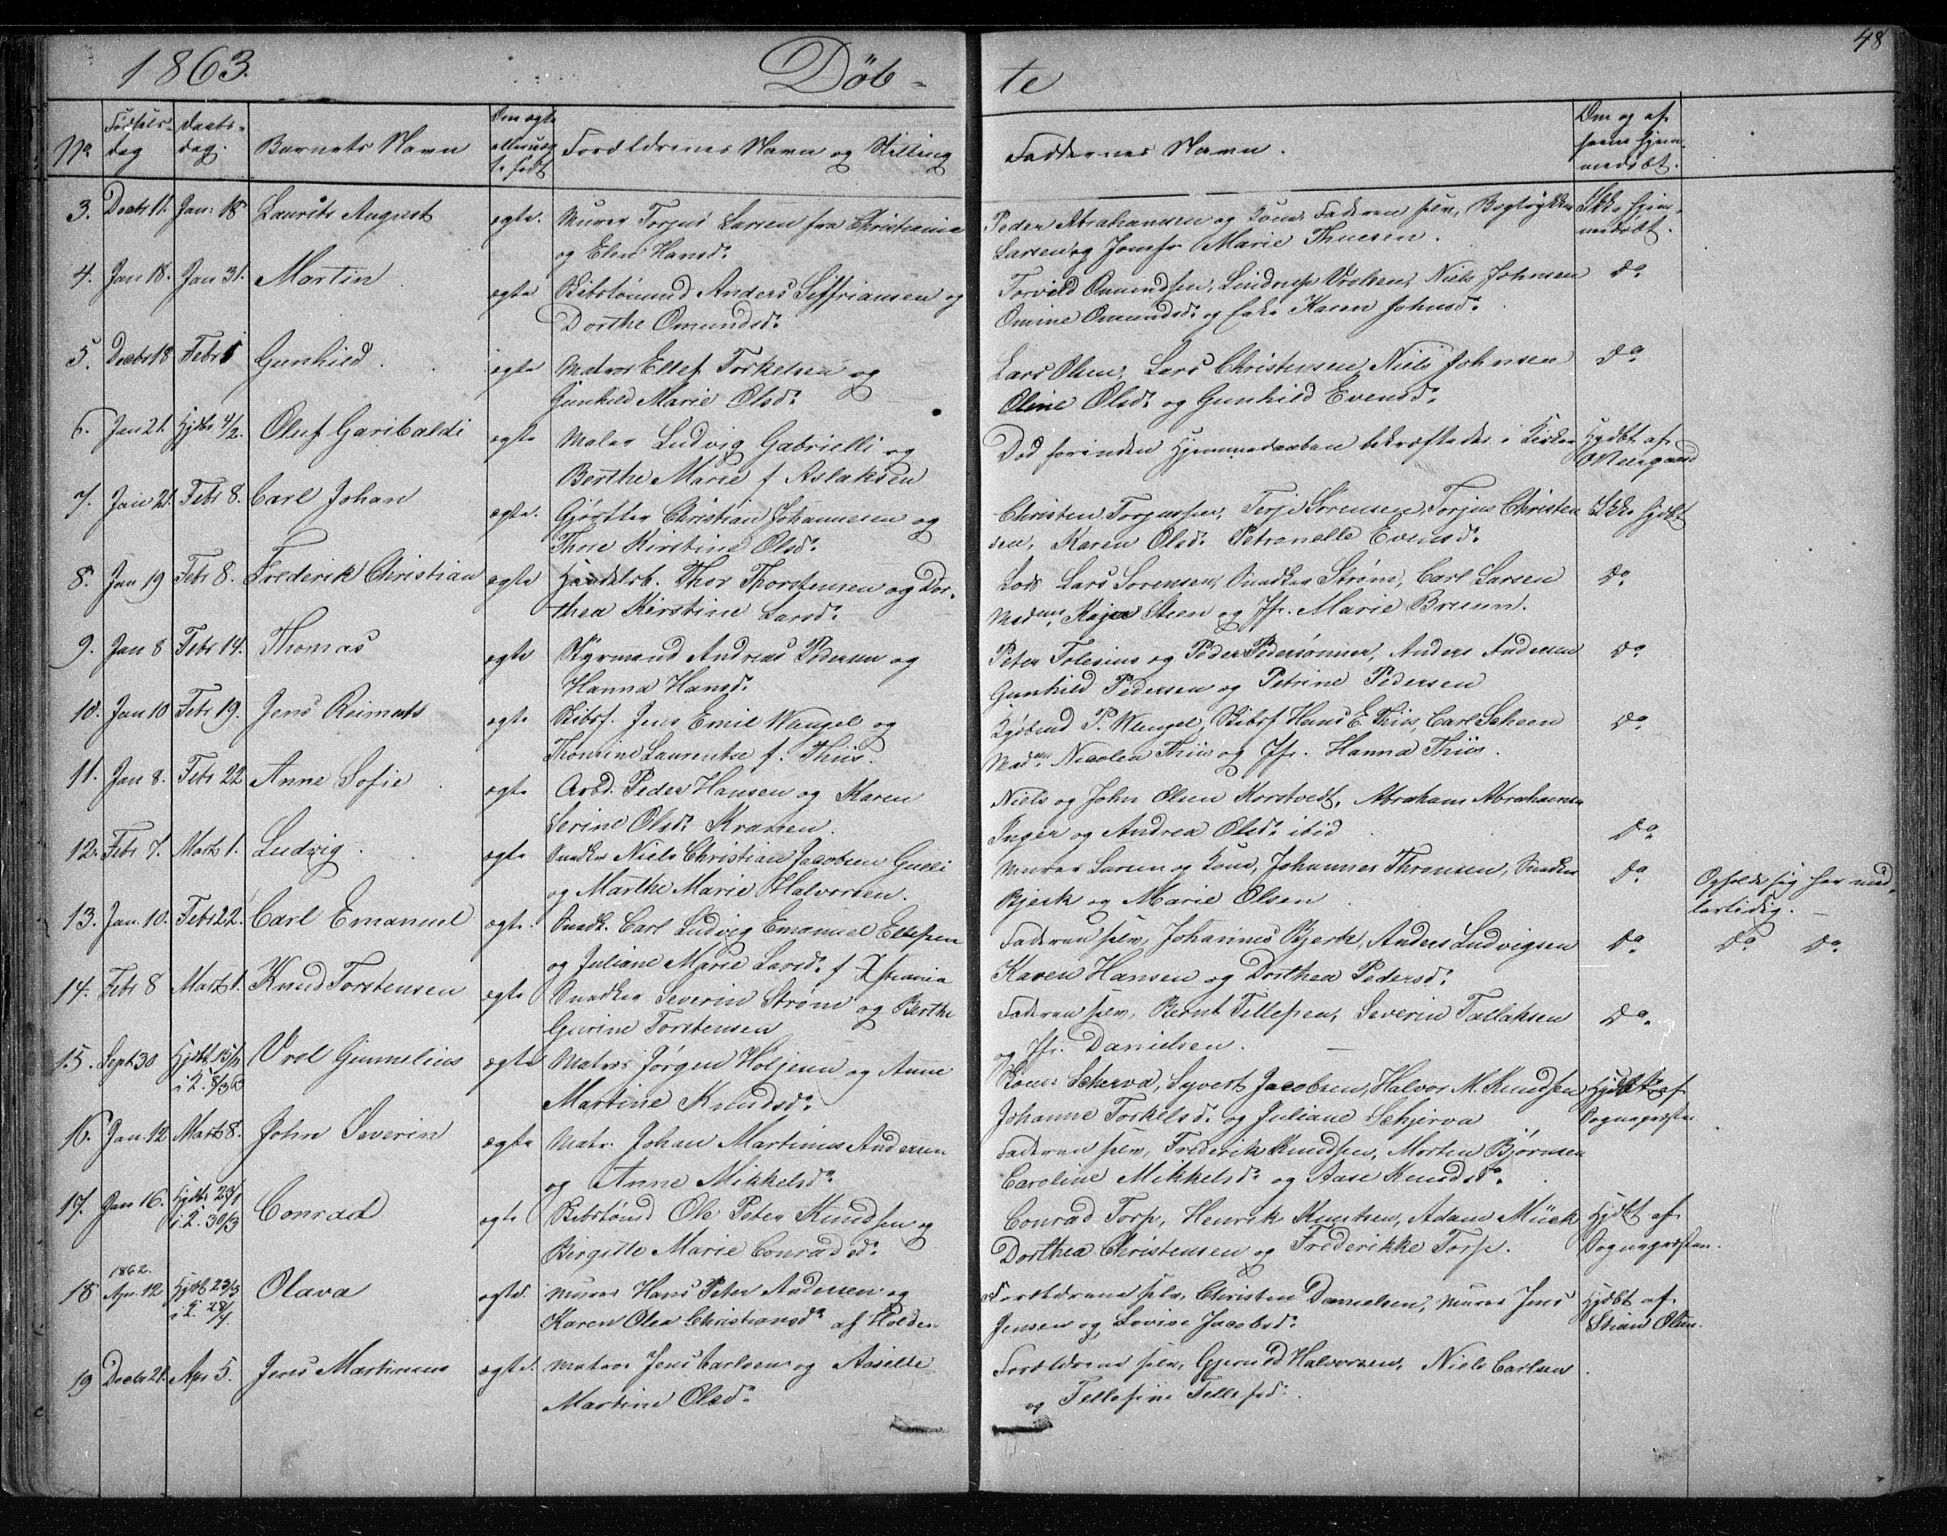 1863. Döb-
te 48
No Fødsels-dag Daabs-dag. Barnets Navn Om ægte eller uægte født Forældrenes Navn og Stilling
Faddernes Navn. Om og af hvem hjemmedøbt.
3. Decbr 11. Jan: 18 Laurits August ægte. Murer Torjus Larsen fra Christiania
og Elen Hansd.
Peder Abrahamsen og Kone, Faderen selv, Bogtrykker Ikke hjem-
Larsen og Jomfr Marie Thuesen. medøbt.
4. Jan 18. Jan 31. Martin ægte Anders Siffriansen og
Dorthe Omundsd.
Torvild Omundsen, Niels Johnsen Do
Omine Omundsd. og Karen Johnsd.
5. Decbr 18 Febr Gunhild ægte Matros Ellef Torkelsen og
Gunhild Marie Olsd.
Lars Olsen, Lars Christensen, Niels Johnsen Do
Oline Olsd. og Gunhild Evensd.
6. Jan 21. Hjdbt 4/2. Oluf Garibaldi ægte Maler Ludvig Gabrielli og
Berthe Marie f Aslaksen
Død forinden Hjemmedaaben bekræftedes i Kirken Hjdbt af
7. Jan 21. Febr 8. Carl Johan ægte. Gjørtler Christian Johannesen og
Thore Kirstine Olsd.
Christen Torjussen, Terje Sørensen, Torjus Christen Ikke hjdbt
sen, Karen Olsd. Petronelle Evensd.
8. Jan 19 Febr 8. Frederik Christian ægte Handelsb. Thor Thorstensen og Dor-
thea Kirstine Larsd.
Lods Lars Sørensen, Snedker Strøm, Carl Larsen Do
Madme. Kaja Steen og Jfr. Marie Bruun.
9. Jan 8 Febr 14. Thomas ægte Styrmand Andreas Pedersen og
Hanna Hansd.
Peter Tolesius og Peder Pedersønner, Anders Andersen Do
Gunhild Pedersen og Petrine Pedersen
10. Jan 10 Febr 19. Jens ægte Skibsf. Jens Emil Wengel og
Thomine Laurentse f. Thiis.
Kjøbmd P. Wengel, Skibsf Hans E. Thiis, Carl Schoen Do
Madme. Nicolea Thiis og Jfr. Hanna Thiis.
11. Jan 8. Febr 22 Anne Sofie ægte Arbd. Peder Hansen og Karen
Serine Olsd. Krassen.
Niels og John Olsen Korstvedt, Abraham Abrahamsen
Inger og Andrea Olsd. ibid Do
12. Febr 7. Marts 1. Ludvig. ægte Snedker Niels Christian Jacobsen Gulli
og Marthe Marie Halvorsen.
Murer Larsen og Kone, Johannes Thronsen, Snedker Do Opholde sig her mid-
Bjerk og Marie Olsen lertidig.
13. Jan. 10. Febr 22. Carl Emanuel ægte. Snedk. Carl Ludvig Emanuel Ellefsen
og Juliane Marie Larsd. f Xstiania
Faderen selv, Johannes Bjerk, Anders Ludvigsen Do Do Do
Karen Hansen og Dorthea Pedersd.
14. Febr 8 Marts 1. Knud Torstensen ægte Snedker Severin Strøm og Berthe
Gurine Torstensen
Faderen selv, Bernt Tellefsen, Severin Tallaksen Do
og Jfr. Danielsen.
15. Sept 30 Hjdbt i K. 8/3 63 ægte Matros Jørgen Holjesen og Anne
Martine Knudsd.
Syvert Jacobsen, Halvor M. Knudsen Hjdbt af
Johanne Torkelsd. og Juliane Schjerva Sognepræsten
16. Jan. 12 Marts 8. John Severin ægte Matr. Johan Martinius Andersen
og Anne Mikkelsd.
Faderen selv, Frederik Knudsen, Morten Bjørnsen
Caroline Mikkelsd. og Aase Knudsd.
17. Jan 16. Hjdbt i K. 30/3 Conrad ægte Ole Peter Knudsen og
Birgitte Marie Conradsd.
Conrad Torp, Henrik Knutsen, Adam Mück Hjdbt af
Dorthea Christensen og Frederikke Torp. Sognepræsten.
18 1862. Apr. 12 Hjdbt 23/3 i K. Olava ægte. Murer Hans Peter Andersen og
Karen Olea Christiansd. af Holden
Forældrene selv, Christen Danielsen, Murer Jens Hjdbt af
Jensen og Lovise Jacobsd. Olsen.
19 Decbr 21. Apr 5. Jens Martinius ægte. Matros Jens Carlsen og Assille
Martine Olsd.
Forældrene selv, Gjerud Halvorsen, Niels Carlsen
og Tellefine Tellefsd.